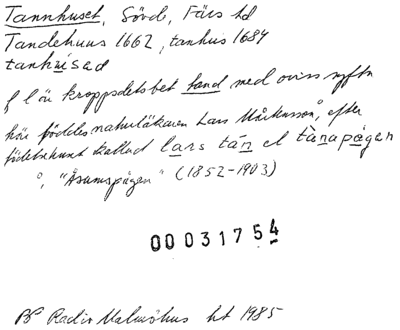 Tannhuset, Sövde, Färs hd
Tandehuus 1662, tanhus 1684
tanhúsad
f l än kroppsdelsbet tand med oviss syftn
här föddes naturläkaren Lars Mårtensson, efter
födelsehuset kallad lars tán el tànapágen
"Åsumspågen" (1852-1903)
00031754
Radio Malmöhus ht 1985